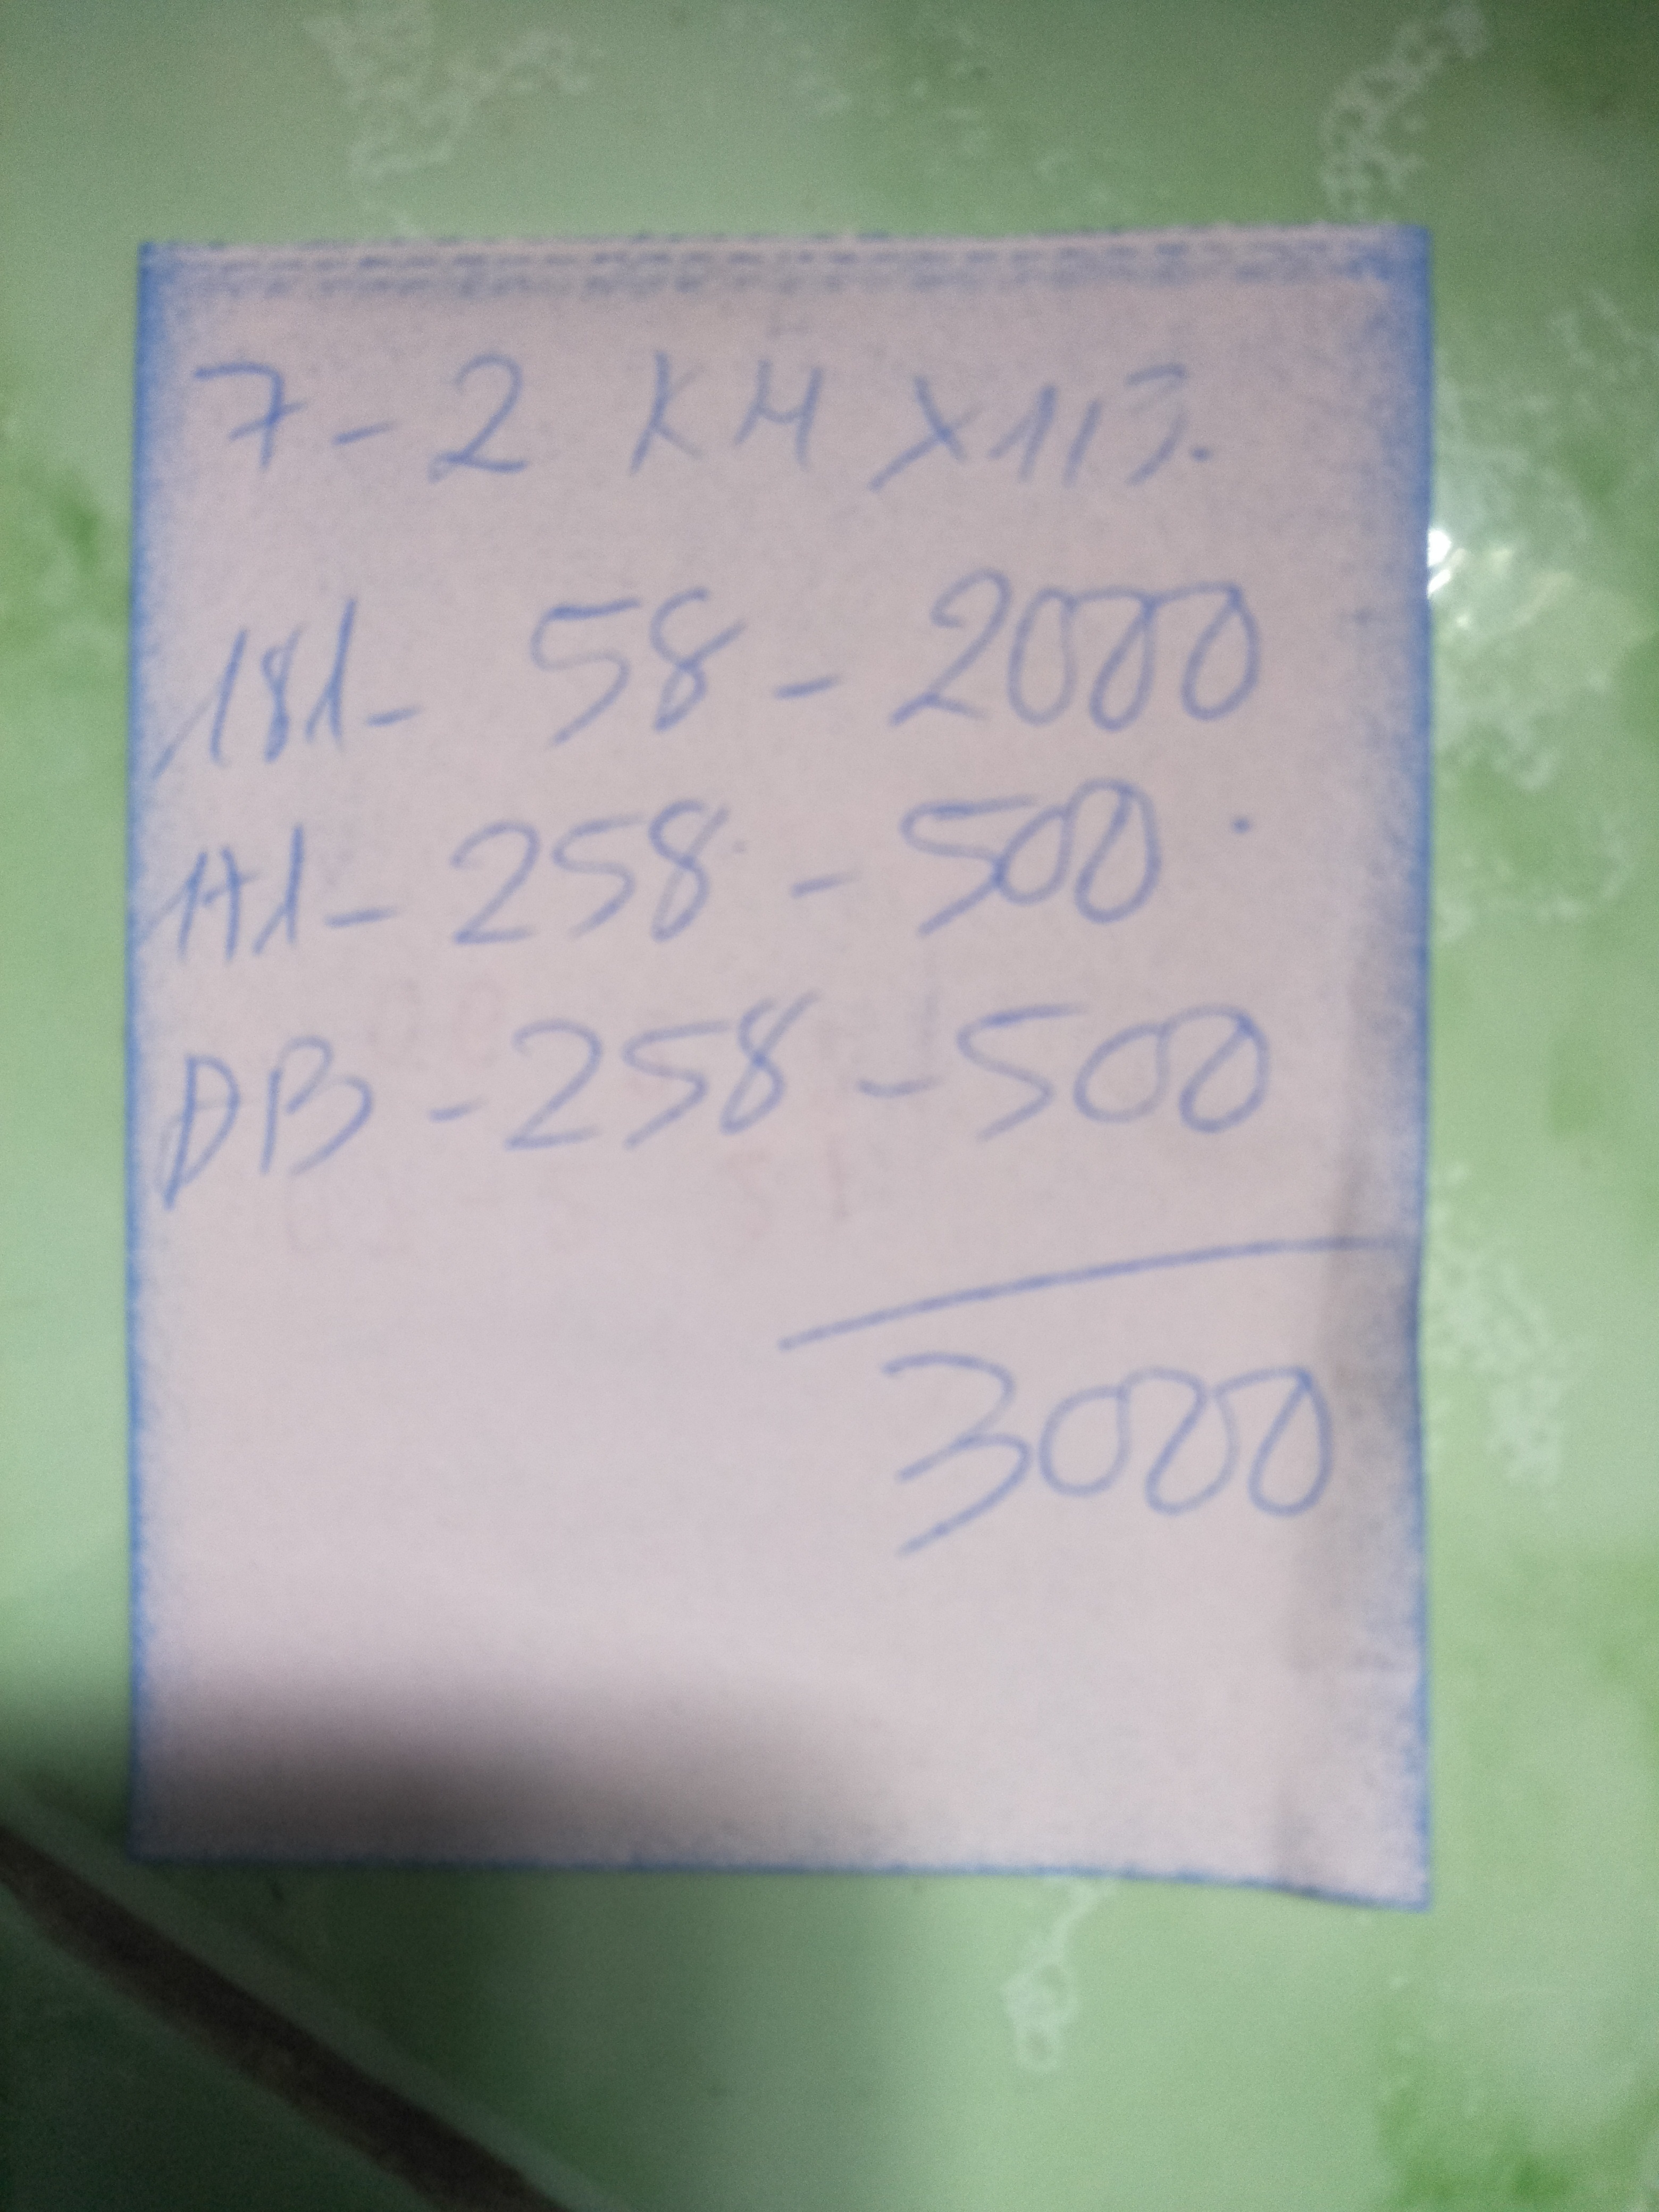 7 - 2 KM X113.
181 - 58 - 2000
1A1 - 258 - 500
DB - 258 - 500
3000